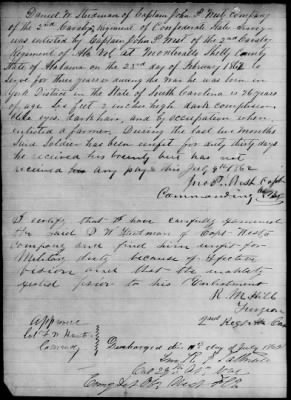 Daniel W. Steedman of Captain John P. West company
of the 2nd Cavalry regiment of Confederate States Army
was enlisted by Captain John P. West of the 2nd Cavalry
Regiment of Ala Vol at Montevallo Shelby County
State of Alabama on the 25th day of February 1862 to
serve for three years or during the war he was born in
York District in the State of South Carolina is 36 years
of age six feet 2 inches high dark complexion
blue eyes, dark hair, and by occupation when
enlisted a farmer. During the last two months
said Soldier has been unfit for duty thirty days
he received his bounty but has not
received his any pay this July 9th 1862
Jno P. West Capt
Commanding Co
I certify that I have carefully examined
the said D W Steedman of Capt West's
Company and find him unfit for
Military duty because of defective
vision and that the inability
existed prior to his Enlistment
R. M. Hill
Surgeon
2nd Regt Ala Cav
Approved
Col F W Hunt
Comdg
Discharged this 10th day of July 1862